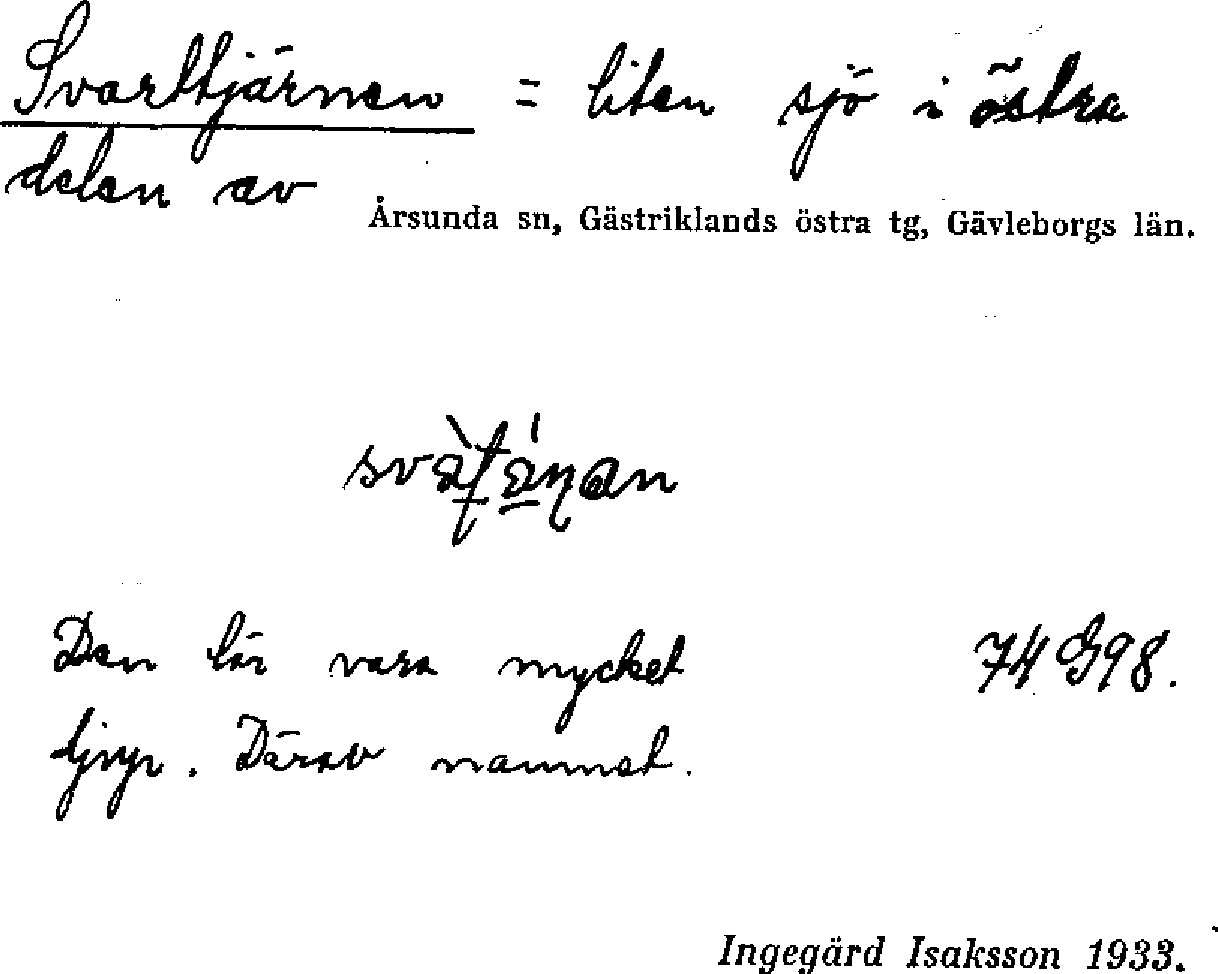 Svarttjärnen = liten sjö i östra
delen av
Årsunda sn, Gästriklands östra tg, Gävleborgs län.
Den lär vara mycket
74 G98.
djup. Därav namnet.
Ingegärd Isaksson 1933.